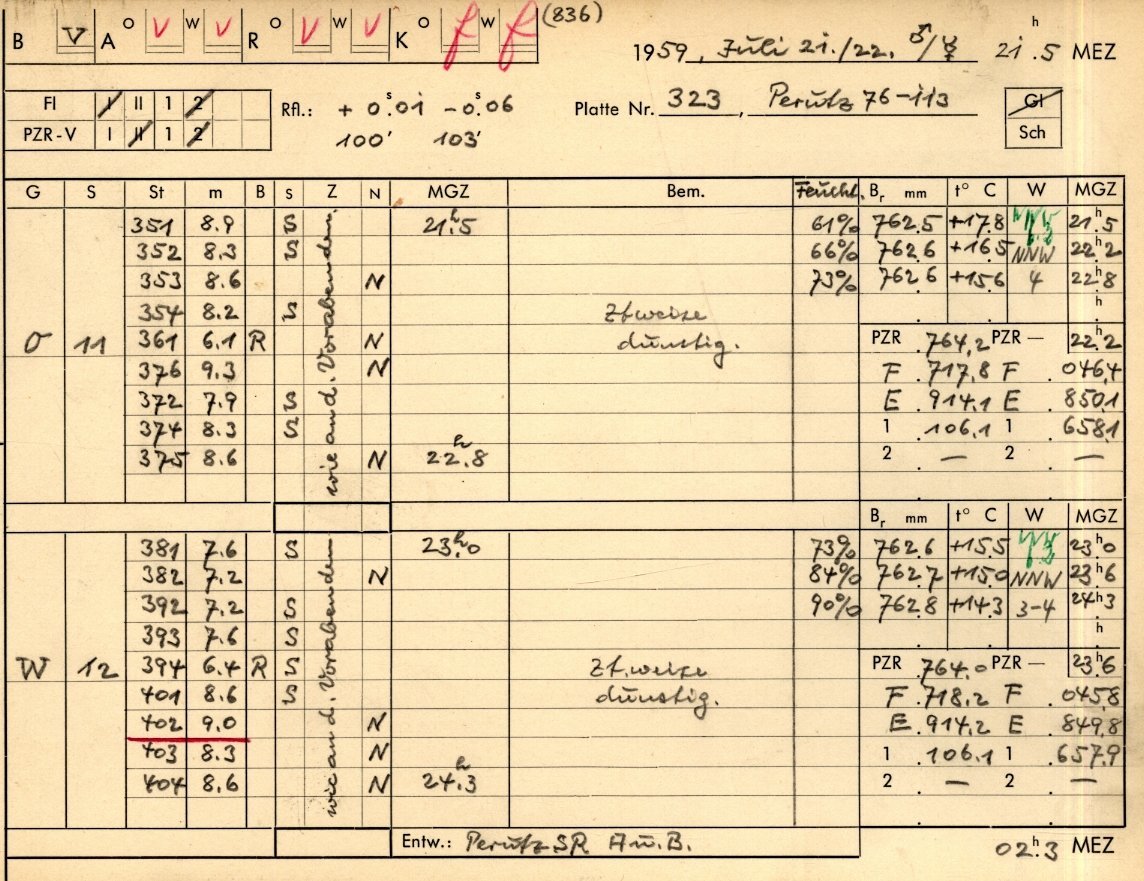 B V A O V W V R O V W V K O f W f (836)
1959, Juli 21./22. ♂/☿ 21h.5 MEZ
Fl I II 1 2
PZR-V I II 1 2
Rfl.: +0s.01 -0s.06
100' 103'
Platte Nr. 323, Perutz 76-113
Gl
Sch
G S St m B S Z N MGZ Bem. Feucht. Br mm t° C W MGZ
351 8.9 S 21h.5 61% 762.5 +17.8 21h5
352 8.3 S 66% 762.6 +16.5 NNW 22h2
353 8.6 N 73% 762.6 +15.6 4 22h8
354 8.2 S Ztweise h
O 11 361 6.1 R N dunstig. PZR 764,2 PZR — 22h2
376 9.3 N F 717,8 F 046,4
372 7.9 S E 914,1 E 850,1
374 8.3 S 1 106,1 1 658,1
375 8.6 N 22h.8 2 — 2 —
wie an d. Vorabenden
Br mm t° C W MGZ
381 7.6 S 23h.0 73% 762.6 +15.5 23h0
382 7.2 N 84% 762.7 +15.0 NNW 23h6
392 7.2 S 90% 762.8 +14.3 3-4 24h3
393 7.6 S h
W 12 394 6.4 R S Ztweise PZR 764.0 PZR — 23h.6
401 8.6 S dunstig. F 718,2 F 045,8
402 9.0 N E 914,2 E 849,8
403 8.3 N 1 106,1 1 657,9
404 8.6 N 24h.3 2 — 2 —
wie an d. Vorabenden
Entw.: Perutz SR A u. B. 02h.3 MEZ